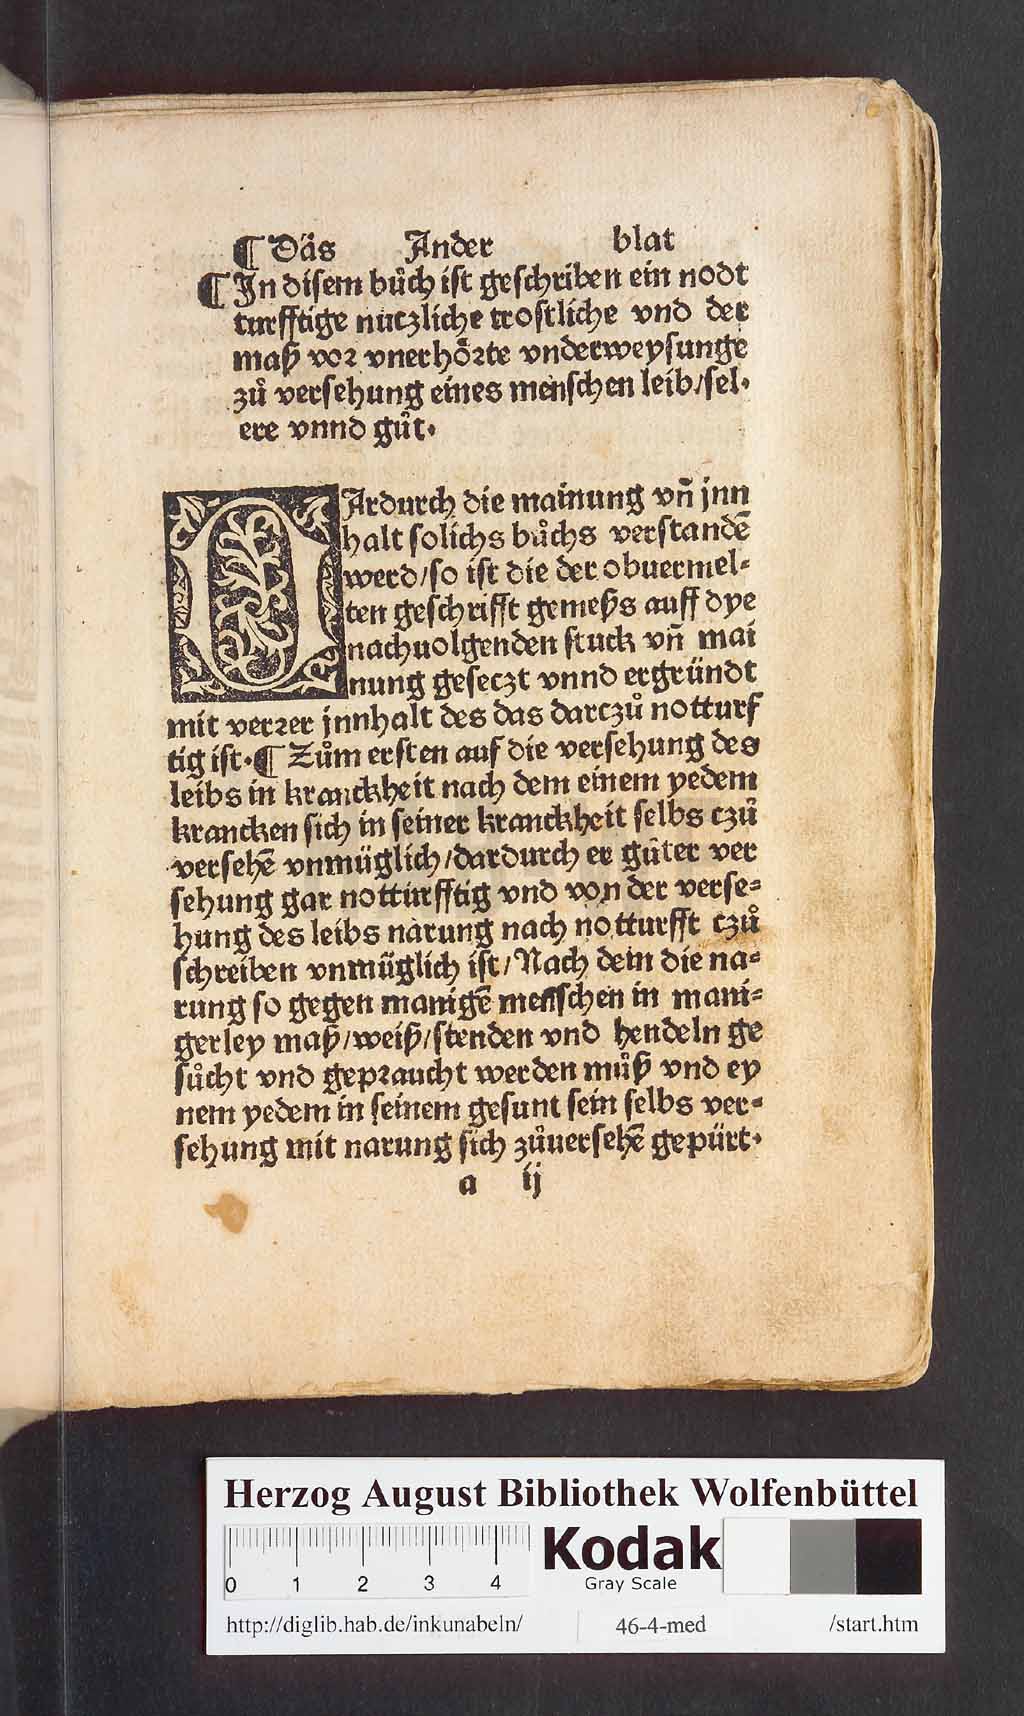 ¶ Däs Ander blat
¶ In disem bůch ist geschriben ein nodt
turfftige nuczliche trostliche vnd der
maß vor vnerhörte vnderweysunge
zů versehung eines menschen leib/sel⸗
ere vnnd gůt.
DArdurch die mainung vn̄ jnn
halt solichs bůchs verstandē
werd/so ist die der obuermel⸗
ten geschrifft gemeßs auff dye
nachuolgenden stuck vn̄ mai
nung geseczt vnnd ergründt
mit verrer jnnhalt des das darczů notturf
tig ist.¶ Zům ersten auf die versehung des
leibs in kranckheit nach dem einem yedem
krancken sich in seiner kranckheit selbs czů
versehē vnmüglich/dardurch er gůter ver
sehung gar notturfftig vnd von der verse⸗
hung des leibs narung nach notturfft czů
schreiben vnmüglich ist/Nach dem die na⸗
rung so gegen manigē menschen in mani⸗
gerley maß/weiß/stenden vnd hendeln ge
sůcht vnd gepraucht werden můß vnd ey
nem yedem in seinem gesunt sein selbs ver⸗
sehung mit narung sich zůuersehē gepürt.
a ij
Herzog August Bibliothek Wolfenbüttel
0 1 2 3 4
Kodak
Gray Scale
http://diglib.hab.de/inkunabeln/ 46-4-med /start.htm